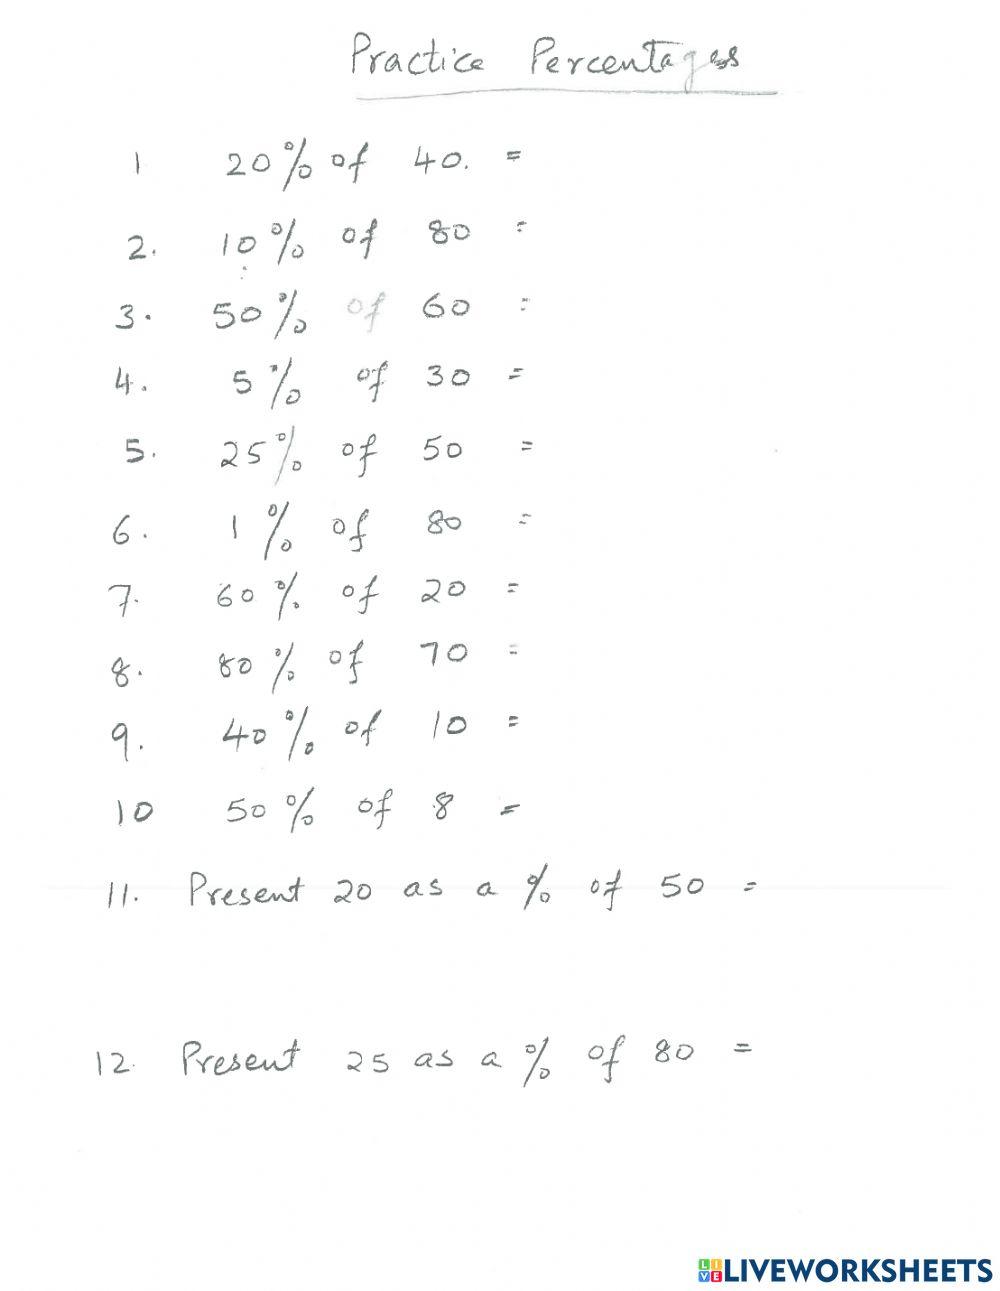 Practice Percentages
1 20% of 40. =
2. 10% of 80 =
3. 50% of 60 =
4. 5% of 30 =
5. 25% of 50 =
6. 1% of 80 =
7. 60% of 20 =
8. 80% of 70 =
9. 40% of 10 =
10 50% of 8 =
11. Present 20 as a % of 50 =
12. Present 25 as a % of 80 =
LIVE LIVEWORKSHEETS